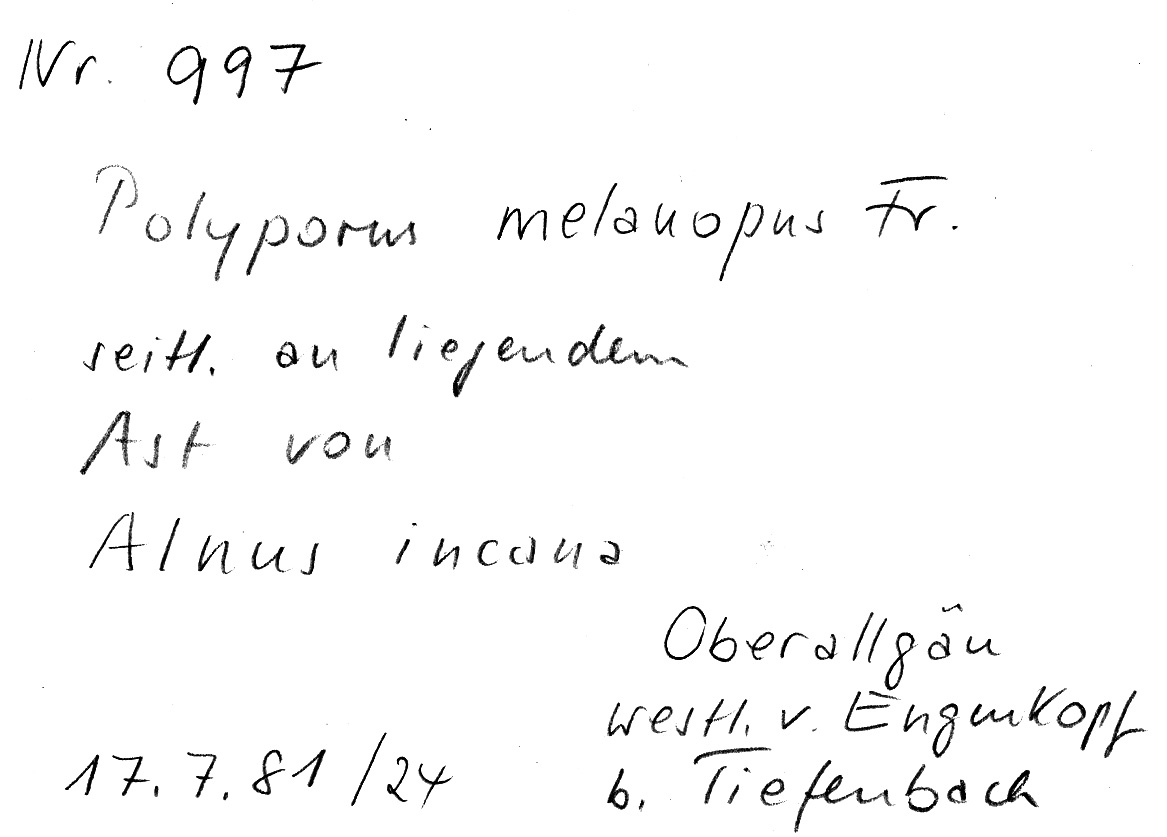 Nr. 997
Polyporus melanopus Fr.
seitl. an liegendem
Ast von
Alnus incana
Oberallgäu
westl. v. Engenkopf
17.7.81/24 b. Tiefenbach